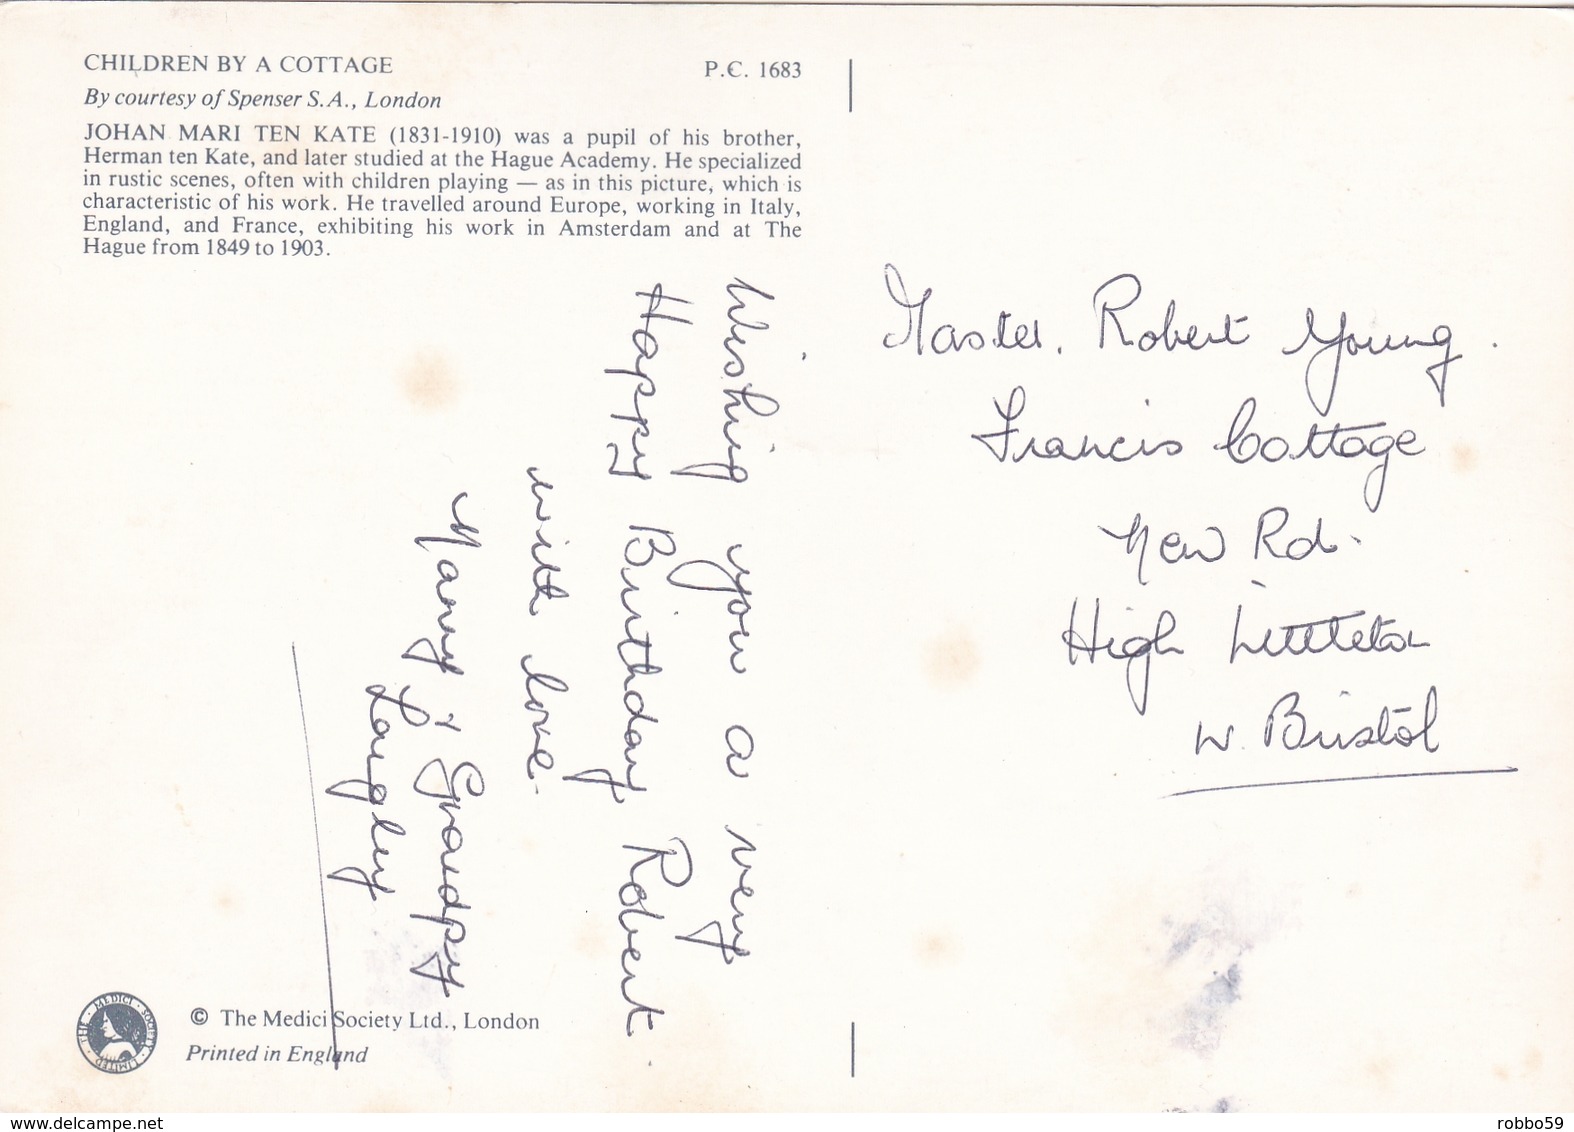 CHILDREN BY A COTTAGE
P.C. 1683
By courtesy of Spenser S.A., London
JOHAN MARI TEN KATE (1831-1910) was a pupil of his brother,
Herman ten Kate, and later studied at the Hague Academy. He specialized
in rustic scenes, often with children playing — as in this picture, which is
characteristic of his work. He travelled around Europe, working in Italy,
England, and France, exhibiting his work in Amsterdam and at The
Hague from 1849 to 1903.
Wishing you a very
Happy Birthday Robert
with love.
Nanny & Grandpy
Langley
Master. Robert Young.
Francis Cottage
New Rd.
High Littleton
W. Bristol
THE · MEDICI · SOCIETY · LIMITED
© The Medici Society Ltd., London
Printed in England
www.delcampe.net
robbo59